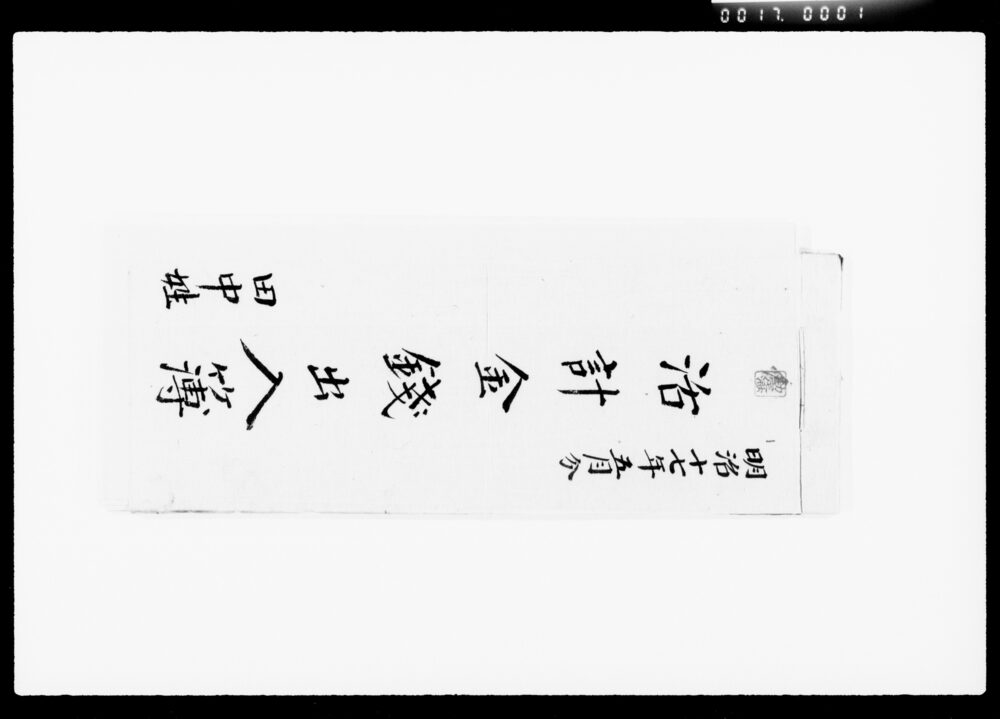 0017. 0001
明治十七年五月
活計金錢出入簿
田中姓